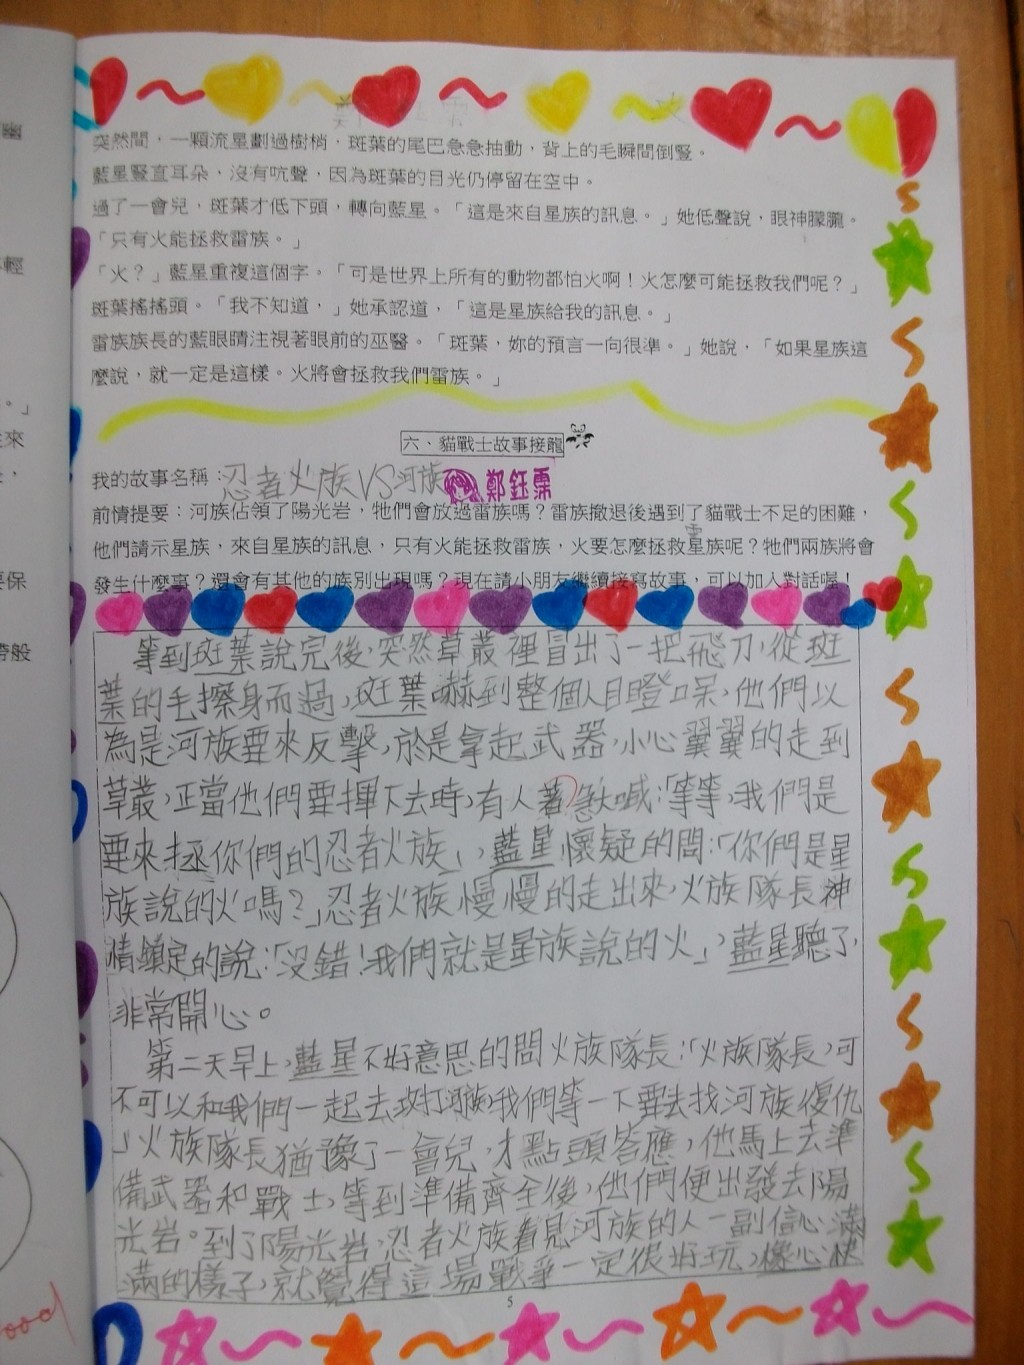 突然間，一顆流星劃過樹梢，斑葉的尾巴急急抽動，背上的毛瞬間倒豎。
藍星豎直耳朵，沒有吭聲，因為斑葉的目光仍停留在空中。
過了一會兒，斑葉才低下頭，轉向藍星。「這是來自星族的訊息。」她低聲說，眼神朦朧。
「只有火能拯救雷族。」
「火？」藍星重複這個字。「可是世界上所有的動物都怕火啊！火怎麼可能拯救我們呢？」
斑葉搖搖頭。「我不知道，」她承認道，「這是星族給我的訊息。」
雷族族長的藍眼睛注視著眼前的巫醫。「斑葉，妳的預言一向很準。」她說，「如果星族這
麼說，就一定是這樣。火將會拯救我們雷族。」
六、貓戰士故事接龍
我的故事名稱：忍者火族VS河族 鄭鈺霈
前情提要：河族佔領了陽光岩，牠們會放過雷族嗎？雷族撤退後遇到了貓戰士不足的困難，
雷
他們請示星族，來自星族的訊息，只有火能拯救雷族，火要怎麼拯救星族呢？牠們兩族將會
發生什麼事？還會有其他的族別出現嗎？現在請小朋友繼續接寫故事，可以加入對話喔！
等到斑葉說完後，突然草叢裡冒出了一把飛刀，從斑
葉的毛擦身而過，斑葉嚇到整個人目瞪口呆，他們以
為是河族要來反擊，於是拿起武器，小心翼翼的走到
草叢，正當他們要揮下去時，有人著急大喊：「等等，我們是
要來拯你們的忍者火族」，藍星懷疑的問：「你們是星
族說的火嗎？」忍者火族慢慢的走出來，火族隊長神
情鎮定的說：「沒錯！我們就是星族說的火」，藍星聽了
非常開心。
第二天早上，藍星不好意思的問火族隊長：「火族隊長，可
不可以和我們一起去攻打河族，我們等一下要去找河族復仇
」火族隊長猶豫了一會兒，才點頭答應，他馬上去準
備武器和戰士，等到準備齊全後，他們便出發去陽
光岩。到了陽光岩，忍者火族看見河族的人一副信心滿
滿的樣子，就覺得這場戰爭一定很好玩，
5
ood
幽
輕
。」
來
要保
帶般